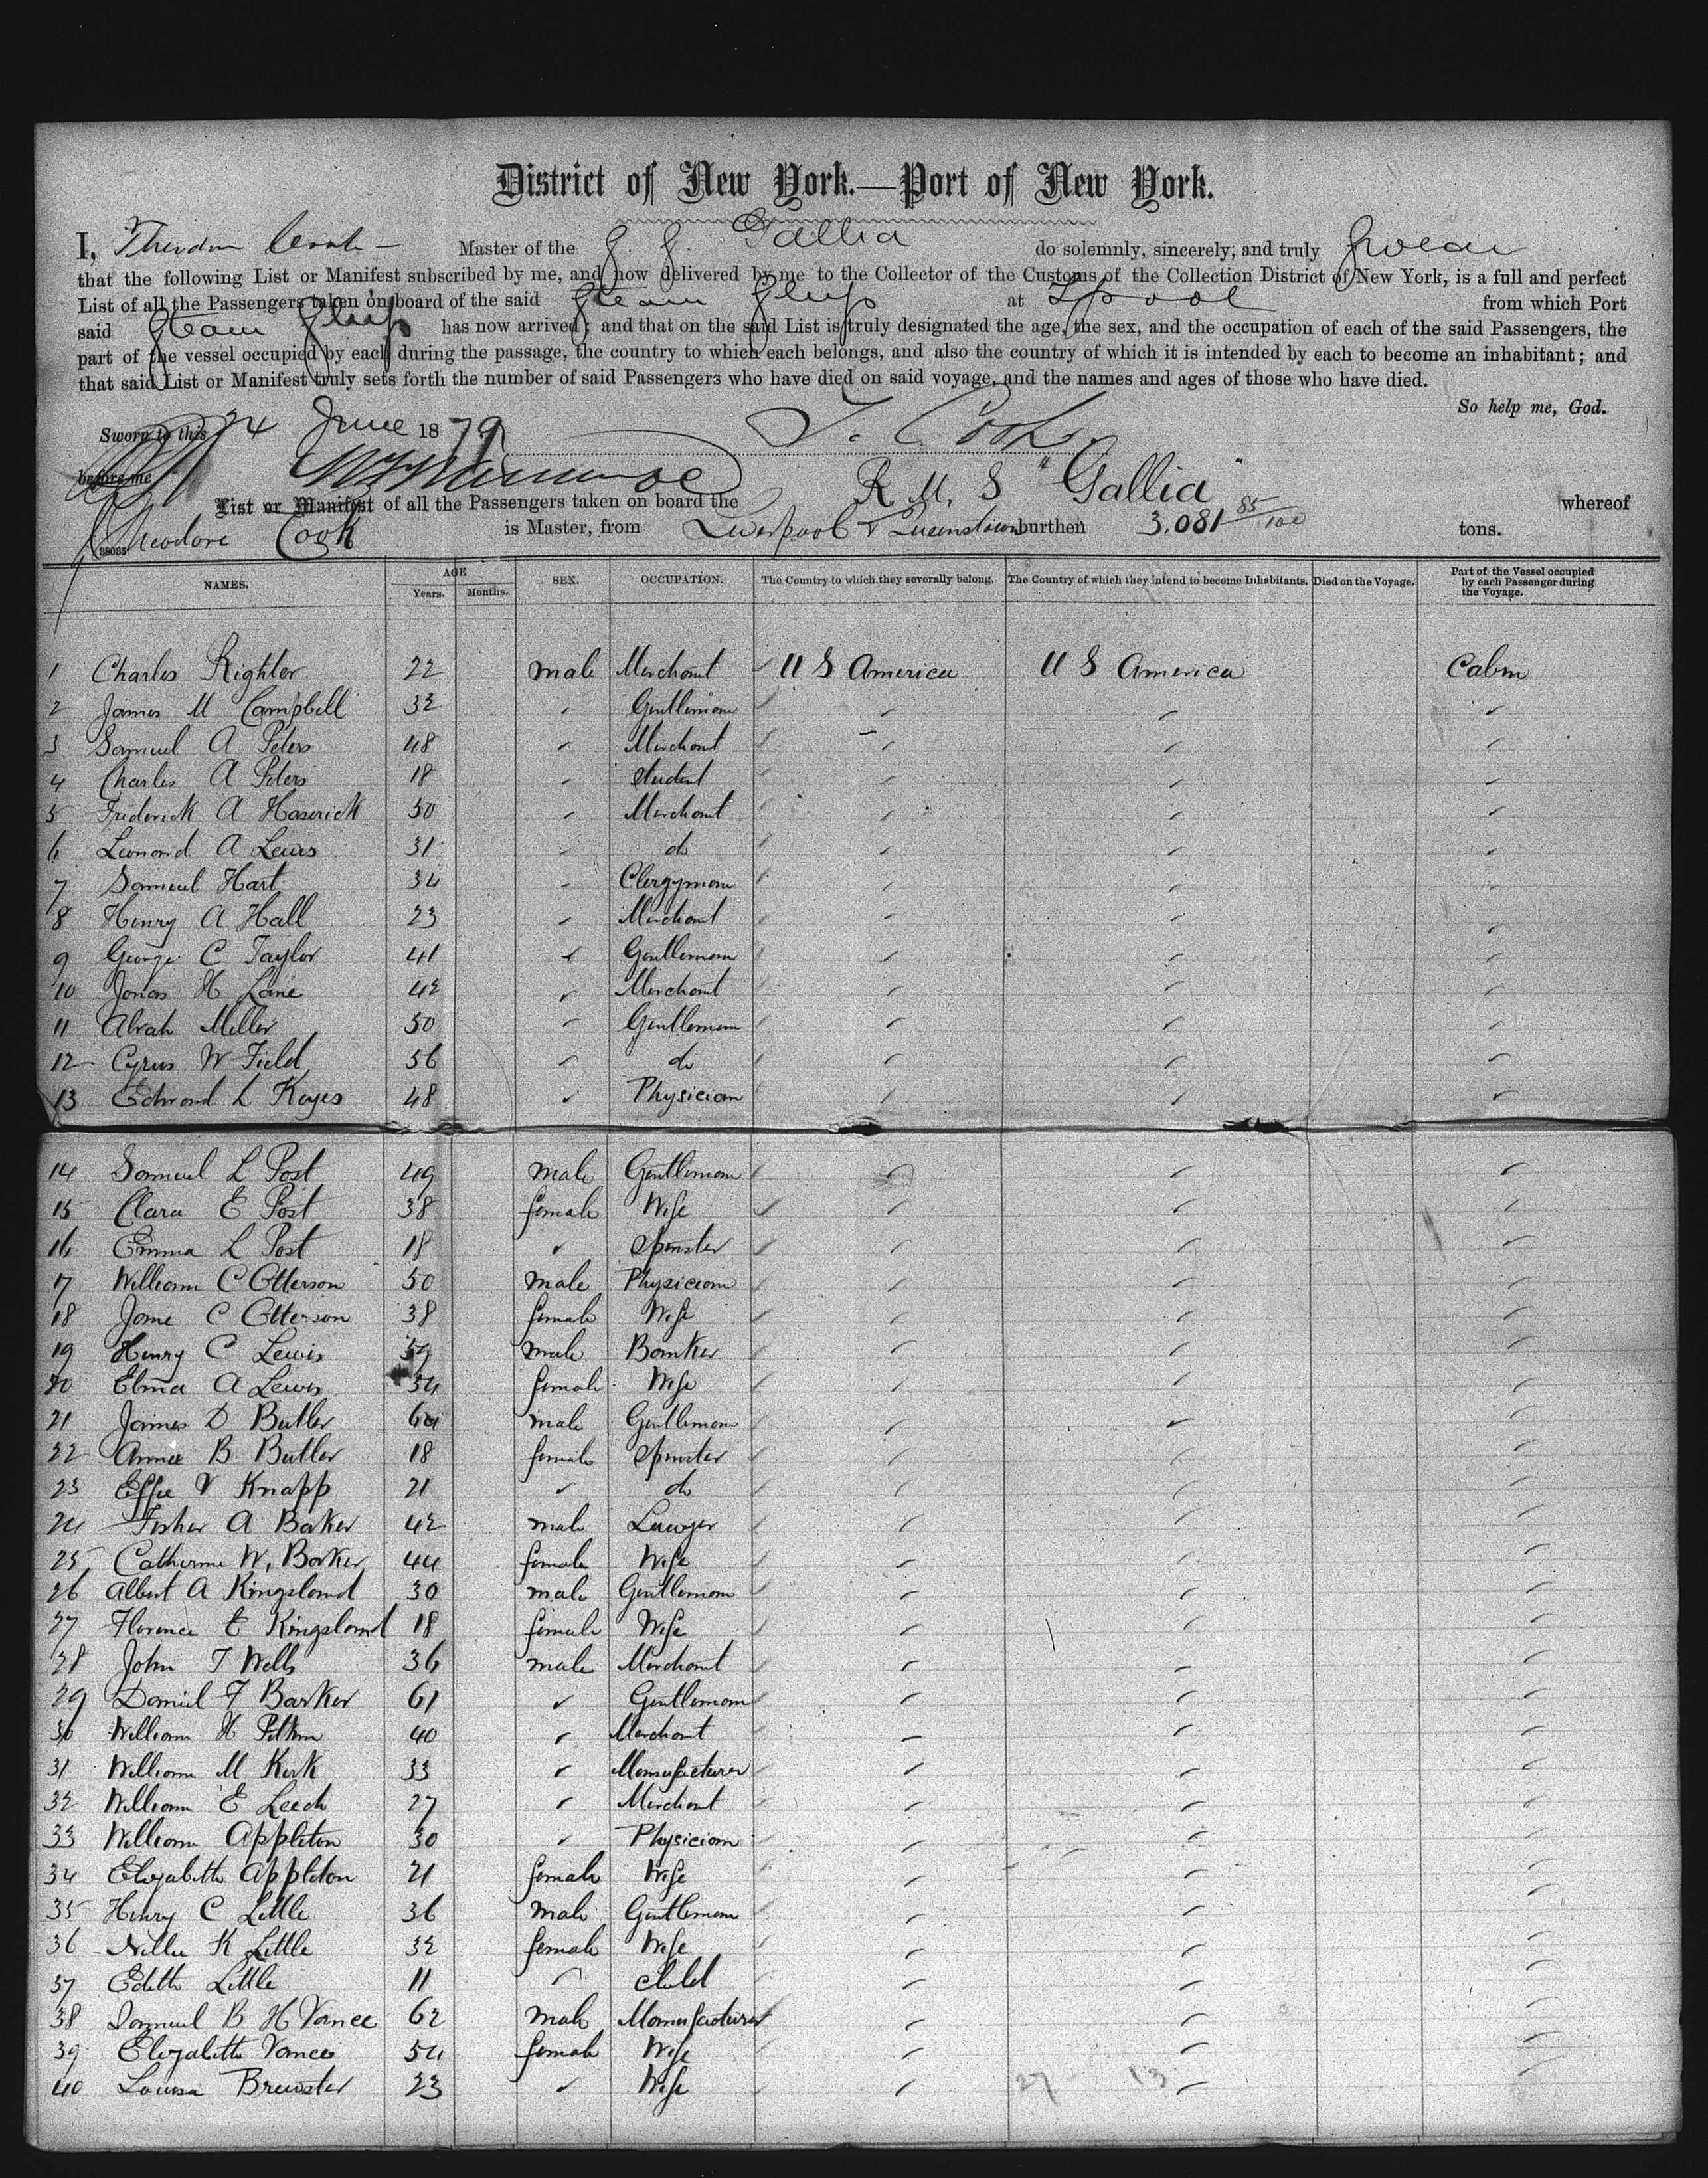 District of New York.—Port of New York.
I, Theodore Cook Master of the S. S. Gallia do solemnly, sincerely, and truly swear
that the following List or Manifest subscribed by me, and now delivered by me to the Collector of the Customs of the Collection District of New York, is a full and perfect
List of all the Passengers taken on board of the said Steam Ship at Lpool from which Port
said Steam Ship has now arrived; and that on the said List is truly designated the age, the sex, and the occupation of each of the said Passengers, the
part of the vessel occupied by each during the passage, the country to which each belongs, and also the country of which it is intended by each to become an inhabitant; and
that said List or Manifest truly sets forth the number of said Passengers who have died on said voyage, and the names and ages of those who have died.
So help me, God.
Sworn to this 24 June 1879 T. Cook
before me
List or Manifest of all the Passengers taken on board the R. M. S "Gallia" whereof
Theodore Cook is Master, from Liverpool & Queenstown burthen 3.081 85/100 tons.
38035
NAMES. AGE Years. Months. SEX. OCCUPATION. The Country to which they severally belong. The Country of which they intend to become Inhabitants. Died on the Voyage. Part of the Vessel occupied by each Passenger during the Voyage.
1 Charles Righter 22 male Merchant U S America U S America Cabin
2 James M Campbell 32 Gentleman
3 Samuel A Peters 48 Merchant
4 Charles A Peters 18 Student
5 Frederick A Haserick 30 Merchant
6 Leonard A Lewis 31 do
7 Samuel Hart 34 Clergyman
8 Henry A Hall 23 Merchant
9 George C Taylor 41 Gentleman
10 Jonas H Lane 42 Merchant
11 Abrah Miller 50 Gentleman
12 Cyrus W Field 56 do
13 Edward L Keyes 48 Physician
14 Samuel L Post 49 male Gentleman
15 Clara E Post 38 female Wife
16 Emma L Post 18 Spinster
17 William C Otterson 50 male Physician
18 Jane C Otterson 38 female Wife
19 Henry C Lewis 59 male Banker
20 Elma A Lewis 34 female Wife
21 James D Butler 64 male Gentleman
22 Annie B Butler 18 female Spinster
23 Effie V Knapp 21 do
24 Fisher A Baker 42 male Lawyer
25 Catherine W. Baker 44 female Wife
26 Albert A Kingsland 30 male Gentleman
27 Florence E Kingsland 18 female Wife
28 John T Wells 36 male Merchant
29 Daniel F Barker 61 Gentleman
30 William H 40 Merchant
31 William M Kirk 33 Manufacturer
32 William E Leech 27 Merchant
33 William Appleton 30 Physician
34 Elizabeth Appleton 21 female Wife
35 Henry C Little 36 male Gentleman
36 Nellie K Little 32 female Wife
37 Edith Little 11 child
38 Samuel B H Vance 62 male Manufacturer
39 Elizabeth Vance 54 female Wife
40 Louisa Brewster 23 Wife 27 13